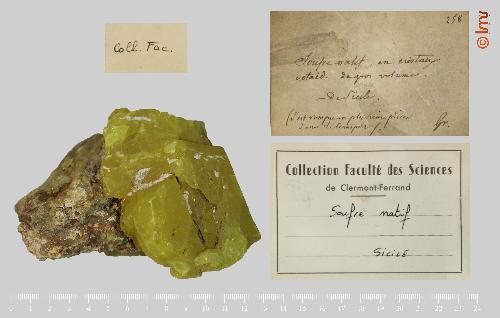 Coll. Fac.
258
Soufre natif, en cristaux
octaéd. de gros volume.
— De Sicile.
(S'est rompu en plusieurs pièces
Gr.
© lmv
Collection Faculté des Sciences
de Clermont-Ferrand
Soufre natif
Sicile
0 1 2 3 4 5 6 7 8 9 10 11 12 13 14 15 16 17 18 19 20 21 22 23 24